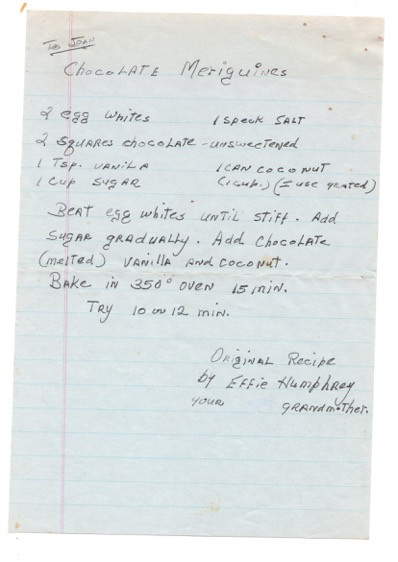 To Joan
Chocolate Meriguines
2 egg whites 1 speck salt
2 squares chocolate - unsweetened
1 Tsp. vanila 1 can coconut
1 cup sugar (1 cup.) (I use grated)
Beat egg whites until stiff. Add
sugar gradually. Add chocolate
(melted) vanilla and coconut.
Bake in 350° oven 15 min.
Try 10 or 12 min.
Original Recipe
by Effie Humphrey
your grandmother.